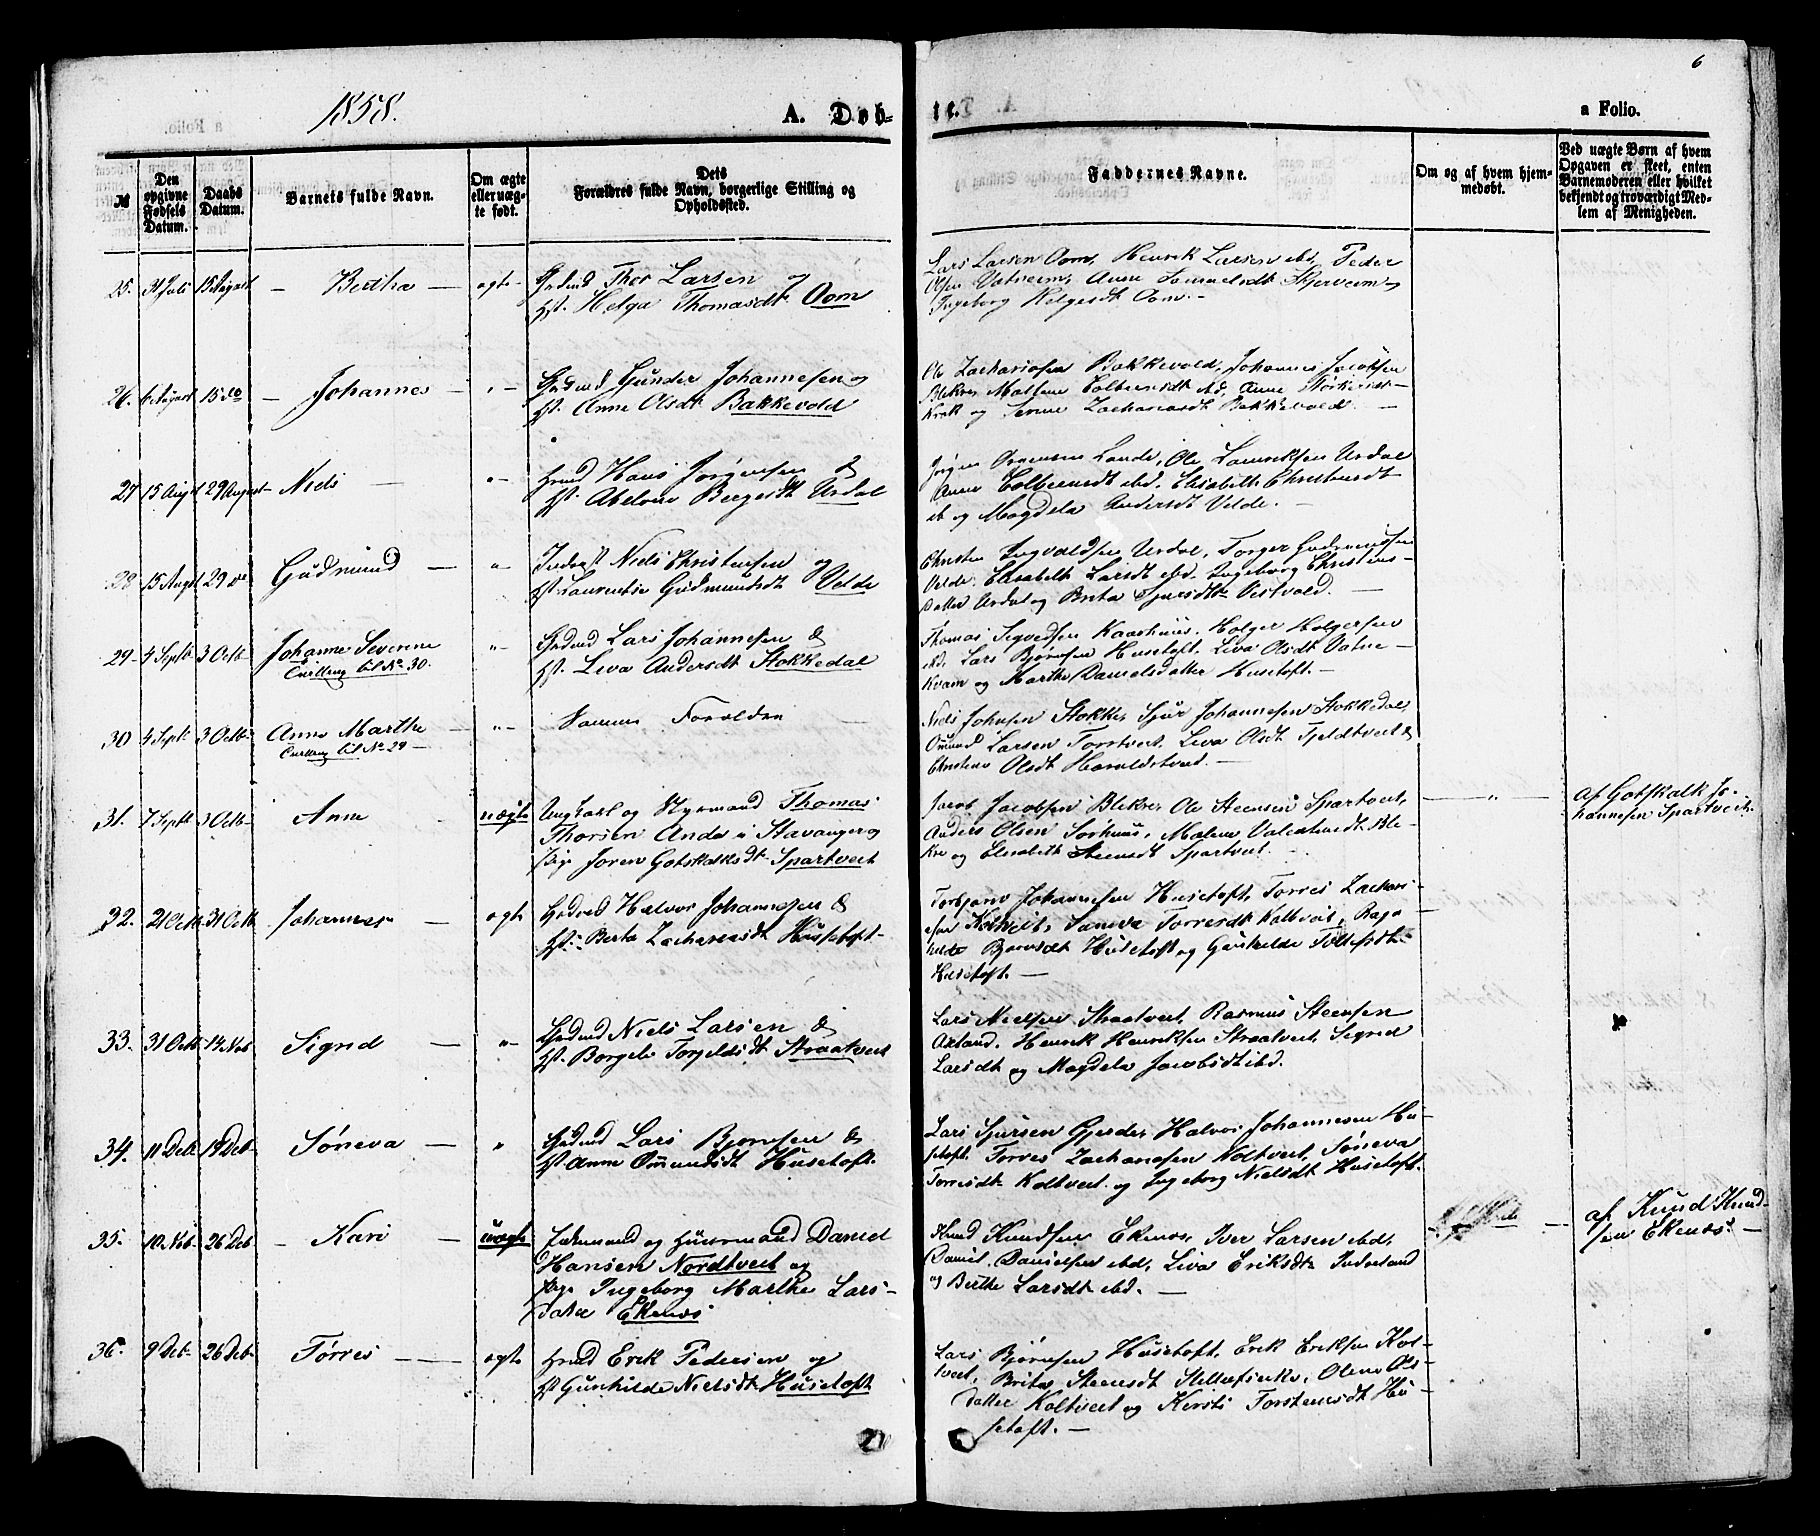 6
1858.
A. Døb-
te.
a Folio.
№
Den opgivne Fødsels Datum.
Daabs Datum.
Barnets fulde Navn.
Om ægte eller uægte født.
Dets Forældres fulde Navn, borgerlige Stilling og Opholdssted.
Faddernes Navne.
Om og af hvem hjemmedøbt.
Ved uægte Børn af hvem Opgaven er skeet, enten Barnemoderen eller hvilket bekjendt og troværdigt Medlem af Menigheden.
25. 31 Juli 15 August — Bertha — ægte
Thor Larsen og
Hst. Helga Thomasdt Oom
Lars Larsen Oom, Henrik Larsen ibd, Peder
Olsen Vatneem, Anne Skjerveim og
Ingeborg Helgesdt Oom. —
26. 6 August 15 do — Johannes — " —
Gunder Johannesen og
Hst. Anne Olsdt Bakkevold
Ole Zachariasen Bakkevold, Johannes Jacobsen
Blekre, ibd, Anne
Krak og Serine Zachariasdt Bakkevold. —
27 15 Augst 29 August — Niels — " —
Hans Jørgensen &
Hst. Abelone Bergesdt Urdal
Jørgen Lande, Ole Urdal
Anne ibd. Elisabeth
ib og Magdela Andersdt Velde. —
28. 15 Augst 29 do Gudmund — "
Niels Christensen og
Hst. Laurentse Gudmundsdt Velde
Christen Ingvaldsen Urdal, Torger Gudmundsen
Velde, Elisabeth Larsdt ibd. Ingeborg Christens-
datter Urdal og Brita Sjursdt Vestvold. —
29. 4 Septb 3 Octb. Johanne Severine " —
Tvilling til No. 30.
Lars Johannesen &
Hst. Liva Andersdt Stokkedal
Thomas Kaarhuus, Holger Holgersen
ibd. Lars Bjørnsen Husetoft. Liva Olsdt Vatne —
Kvam og Marthe Danielsdatter Husetoft. —
30 4 Septb 3 Octb. Anne Marthe — " —
Tvilling til No 29 —
Samme Forældre —
Niels Johnsen Stokke, Sjur Johannesen Stokkedal,
Omund Larsen Torstveit, Liva Olsdt &
Christine Olsdt Haraldstved. —
31. 7 Septb 3 Octb. Anne uægte
Ungkarl og Styrmand Thomas
Thorsen Anda i Stavanger og
Pige Joren Gotskalksdt. Spartveit
Jacob Jacobsen Blekre, Ole Steensen Spartveit,
Anders Olsen Sørhuus, Malene Ble-
kre og Elisabeth Steensdt Spartveit. —
— " —
af Gotskalk Jo-
hannesen Spartveit.
32. 21 Octb 31 Octb Johannes — ægte
Halvor Johannesen &
Hst. Berta Zachariasdt Husetoft —
Torbjørn Johannesen Husetoft, Torres Zachari-
asen Koltveit, Torresdt Koltveit, Ragn-
hilde Bjørnsdt Husetoft og Gunhilde
Husetoft. —
33. 31 Octb 14 Nob Sigrid — " —
Niels Larsen &
Hst. Borgele Torjelsdt Straatveit
Lars Nielsen Straatveit, Rasmus Steensen
Axland. Henrik Henriksen Straatveit, Sigrid
Larsdt og Magdela Jacobsdt ibd.
34. 11 Deb. 19 Deb Søneva — "
Lars Bjørnsen &
Hst. Anne Omundsdt Husetoft.
Lars Sjursen Gjerde, Halvor Johannesen Hu-
setoft. Torres Zachariasen Koltveit, Søneva
Torresdt Koltveit. og Ingeborg Nielsdt Husetoft.
35. 10 Nob 26 Deb — Kari — uægte
og Huusmand Daniel
Hansen Nordtveit og
Pige Ingeborg Marthe Lars-
datter Ekenes
Knud Knudsen Ekenes, Iver Larsen ibd,
Daniel Danielsen ibd, Liva Eriksdt
og Berthe Larsdt ibd. —
af Knud Knud-
sen Ekenes. —
36. 9 Deb. 26 Deb Tørres — ægte
Erik Pedersen og
Hst Gunhilde Nielsdt Husetoft
Lars Bjørnsen Husetoft. Erik Eriksen Kol-
tveit, Brita Steensdt Olene Ols-
datter Koltveit og Kirsti Torstensdt Hu-
setoft. —